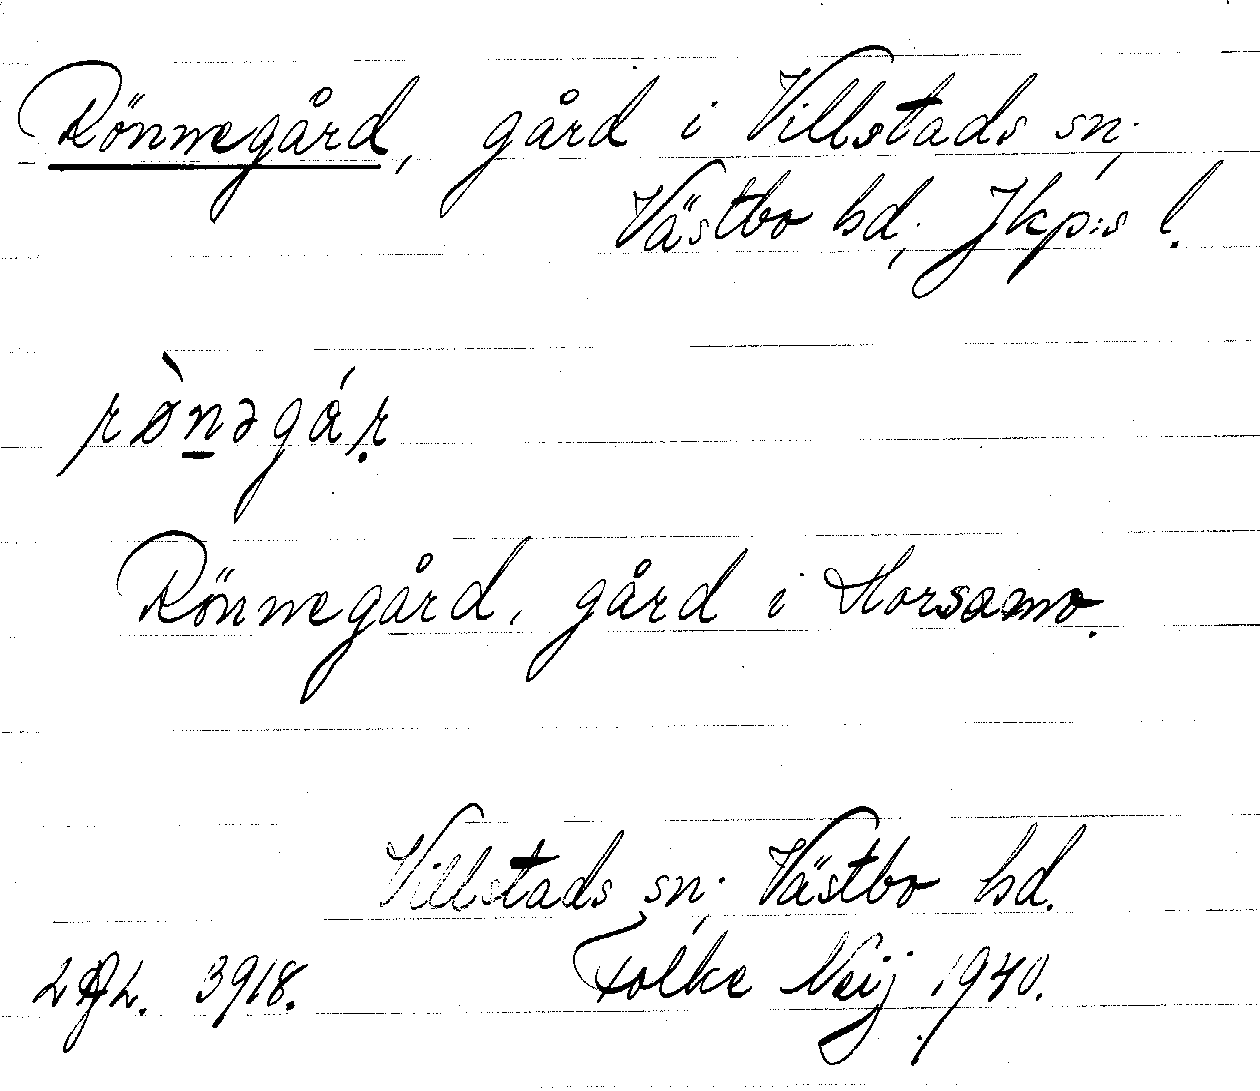 Rönnegård, gård i Villstads sn.,
Västbo hd., Jkp:s l.
rø̀nəgáṛ
Rönnegård, gård i Horsamo.
Villstads sn., Västbo hd.
3918. Folke Neij 1940.